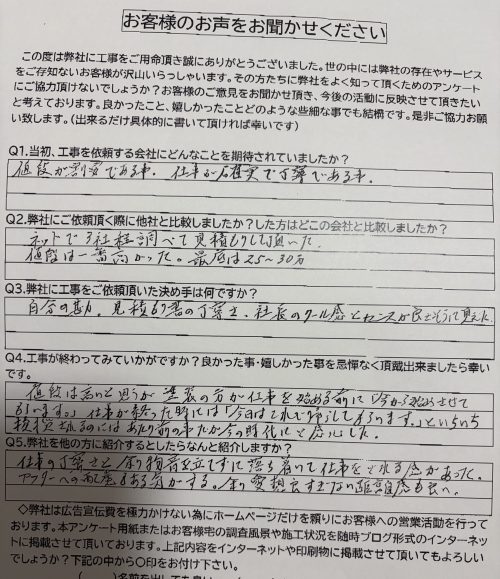 お客様のお声をお聞かせください
この度は弊社に工事をご用命頂き誠にありがとうございました。世の中には弊社の存在やサービス
をご存知ないお客様が沢山いらっしゃいます。その方たちに弊社をよく知って頂くためのアンケート
にご協力頂けないでしょうか？お客様のご意見をお聞かせ頂き、今後の活動に反映させて頂きたい
と考えております。良かったこと、嬉しかったことどのような些細な事でも結構です。是非ご協力お願
い致します。（出来るだけ具体的に書いて頂ければ幸いです）
Q1.当初、工事を依頼する会社にどんなことを期待されていましたか？
値段が割安である事。仕事が確実で丁寧である事。
Q2.弊社にご依頼頂く際に他社と比較しましたか？した方はどこの会社と比較しましたか？
ネットで3社程調べて見積もりして頂いた。
値段は一番高かった。最低は25〜30万
Q3.弊社に工事をご依頼頂いた決め手は何ですか？
自分の勘。見積り書の丁寧さ、社長のクール感とセンスが良さそうに見えた
Q4.工事が終わってみていかがですか？良かった事・嬉しかった事を忌憚なく頂戴出来ましたら幸い
です。
値段は高いと思うが 塗装の方が仕事を始める前に「今から始めさせて
もらいます。」仕事が終った時には「今日はこれで帰らしてもらいます。」といちいち
挨拶されるのはあたり前の事だが今の時代にと感心した。
Q5.弊社を他の方に紹介するとしたらなんと紹介しますか？
仕事の丁寧さと余り物音を立てずに落ち着いて仕事をされる感があった。
アフターへの
もある気がする。余り愛想良すぎない
も良い。
◇弊社は広告宣伝費を極力かけない為にホームページだけを頼りにお客様への営業活動を行って
おります。本アンケート用紙またはお客様宅の調査風景や施工状況を随時ブログ形式のインターネッ
トに掲載させて頂いております。上記内容をインターネットや印刷物に掲載させて頂いてもよろしい
でしょうか？下記の中から〇印をお付け下さい。
（　　）名前を出しても良い